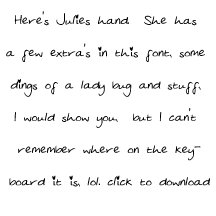 Here's Julies hand  She has
a few extra's in this font, some
dings of a lady bug and stuff.
I would show you,  but I can't
remember where on the key-
board it is, lol. click to download